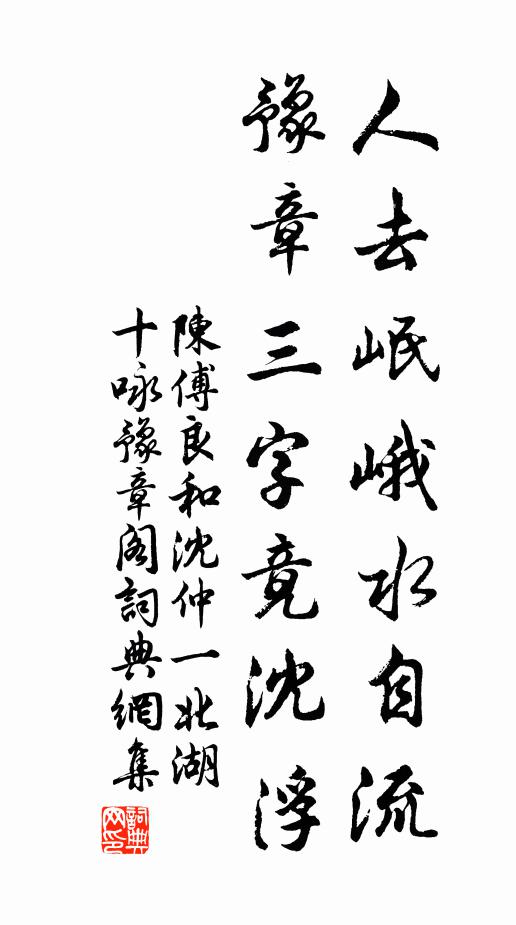 人去岷峨水自流
豫章三字竟沈浮
陳傅良和沈仲一北湖
十咏豫章阁詞典網集
詞典
网印